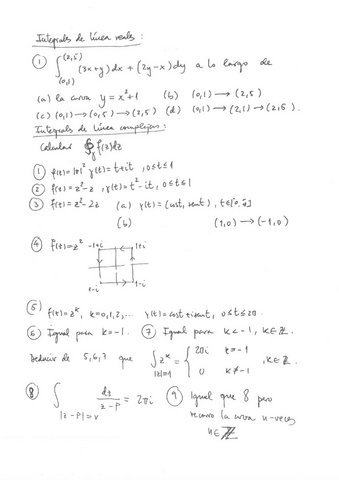 Integrals de línea reales:
① ∫_(0,1)^(2,5) (3x+y)dx + (2y-x)dy a lo largo de
(a) la curva y = x²+1 (b) (0,1) → (2,5)
(c) (0,1) → (0,5) → (2,5) (d) (0,1) → (2,1) → (2,5).
Integrals de línea complejas:
Calcular ∮_γ f(z)dz
① f(z)=|z|² γ(t)=t+it, 0≤t≤1
② f(z)=z²-z, γ(t)=t²-it, 0≤t≤1
③ f(z)=z²-2z (a) γ(t)=(cost, sent), t∈[0,π]
(b) (1,0) → (-1,0)
④ f(z)=z² -1+i 1+i
-1-i 1-i
⑤ f(z)=z^k, k=0,1,2,... γ(t)=cost+isent, 0≤t≤2π.
⑥ Igual para k=-1. ⑦ Igual para k<-1, k∈ℤ.
Deducir de 5,6,7 que ∫_|z|=1 z^k = { 2πi k=-1 0 k≠-1 , k∈ℤ.
⑧ ∫_|z-p|=r dz/(z-p) = 2πi ⑨ Igual que 8 pero
recorro la curva n-veces
n∈ℤ